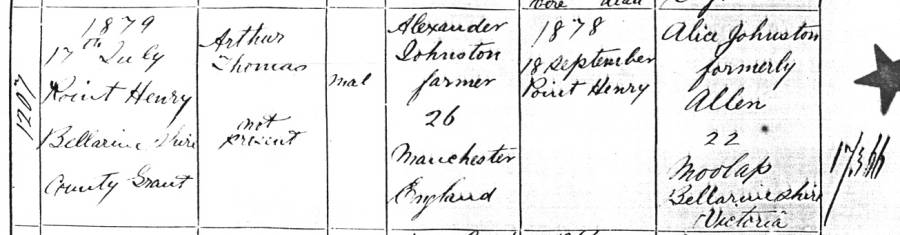 1207
1879
17th July
Point Henry
Bellarine Shire
County Grant
Arthur
Thomas
not
present
Mal
Alexander
Johnston
farmer
26
Manchester
England
1878
18 September
Point Henry
Alice Johnston
formerly
Allen
22
Moolap
Bellarine Shire
Victoria